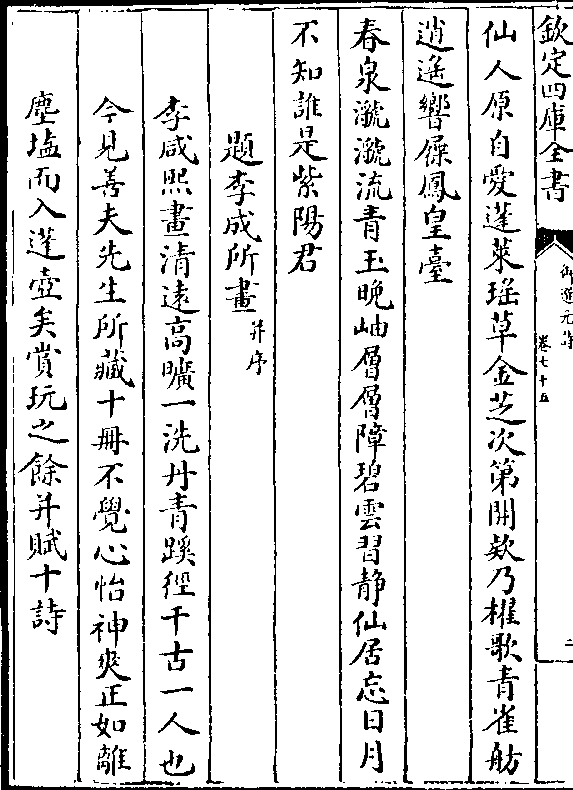 欽定四庫全書
御選元詩
卷七十五
二
仙人原自愛蓬萊瑶草金芝次第開欸乃櫂歌青雀舫
逍遥響屧鳳皇臺
春泉㶁㶁流青玉晚岫層層障碧雲習静仙居忘日月
不知誰是紫陽君
題李成所畫并序
李咸熙畫清遠高曠一洗丹青蹊徑千古一人也
今見善夫先生所藏十冊不覺心怡神爽正如離
塵壒而入蓬壺矣賞玩之餘并賦十詩